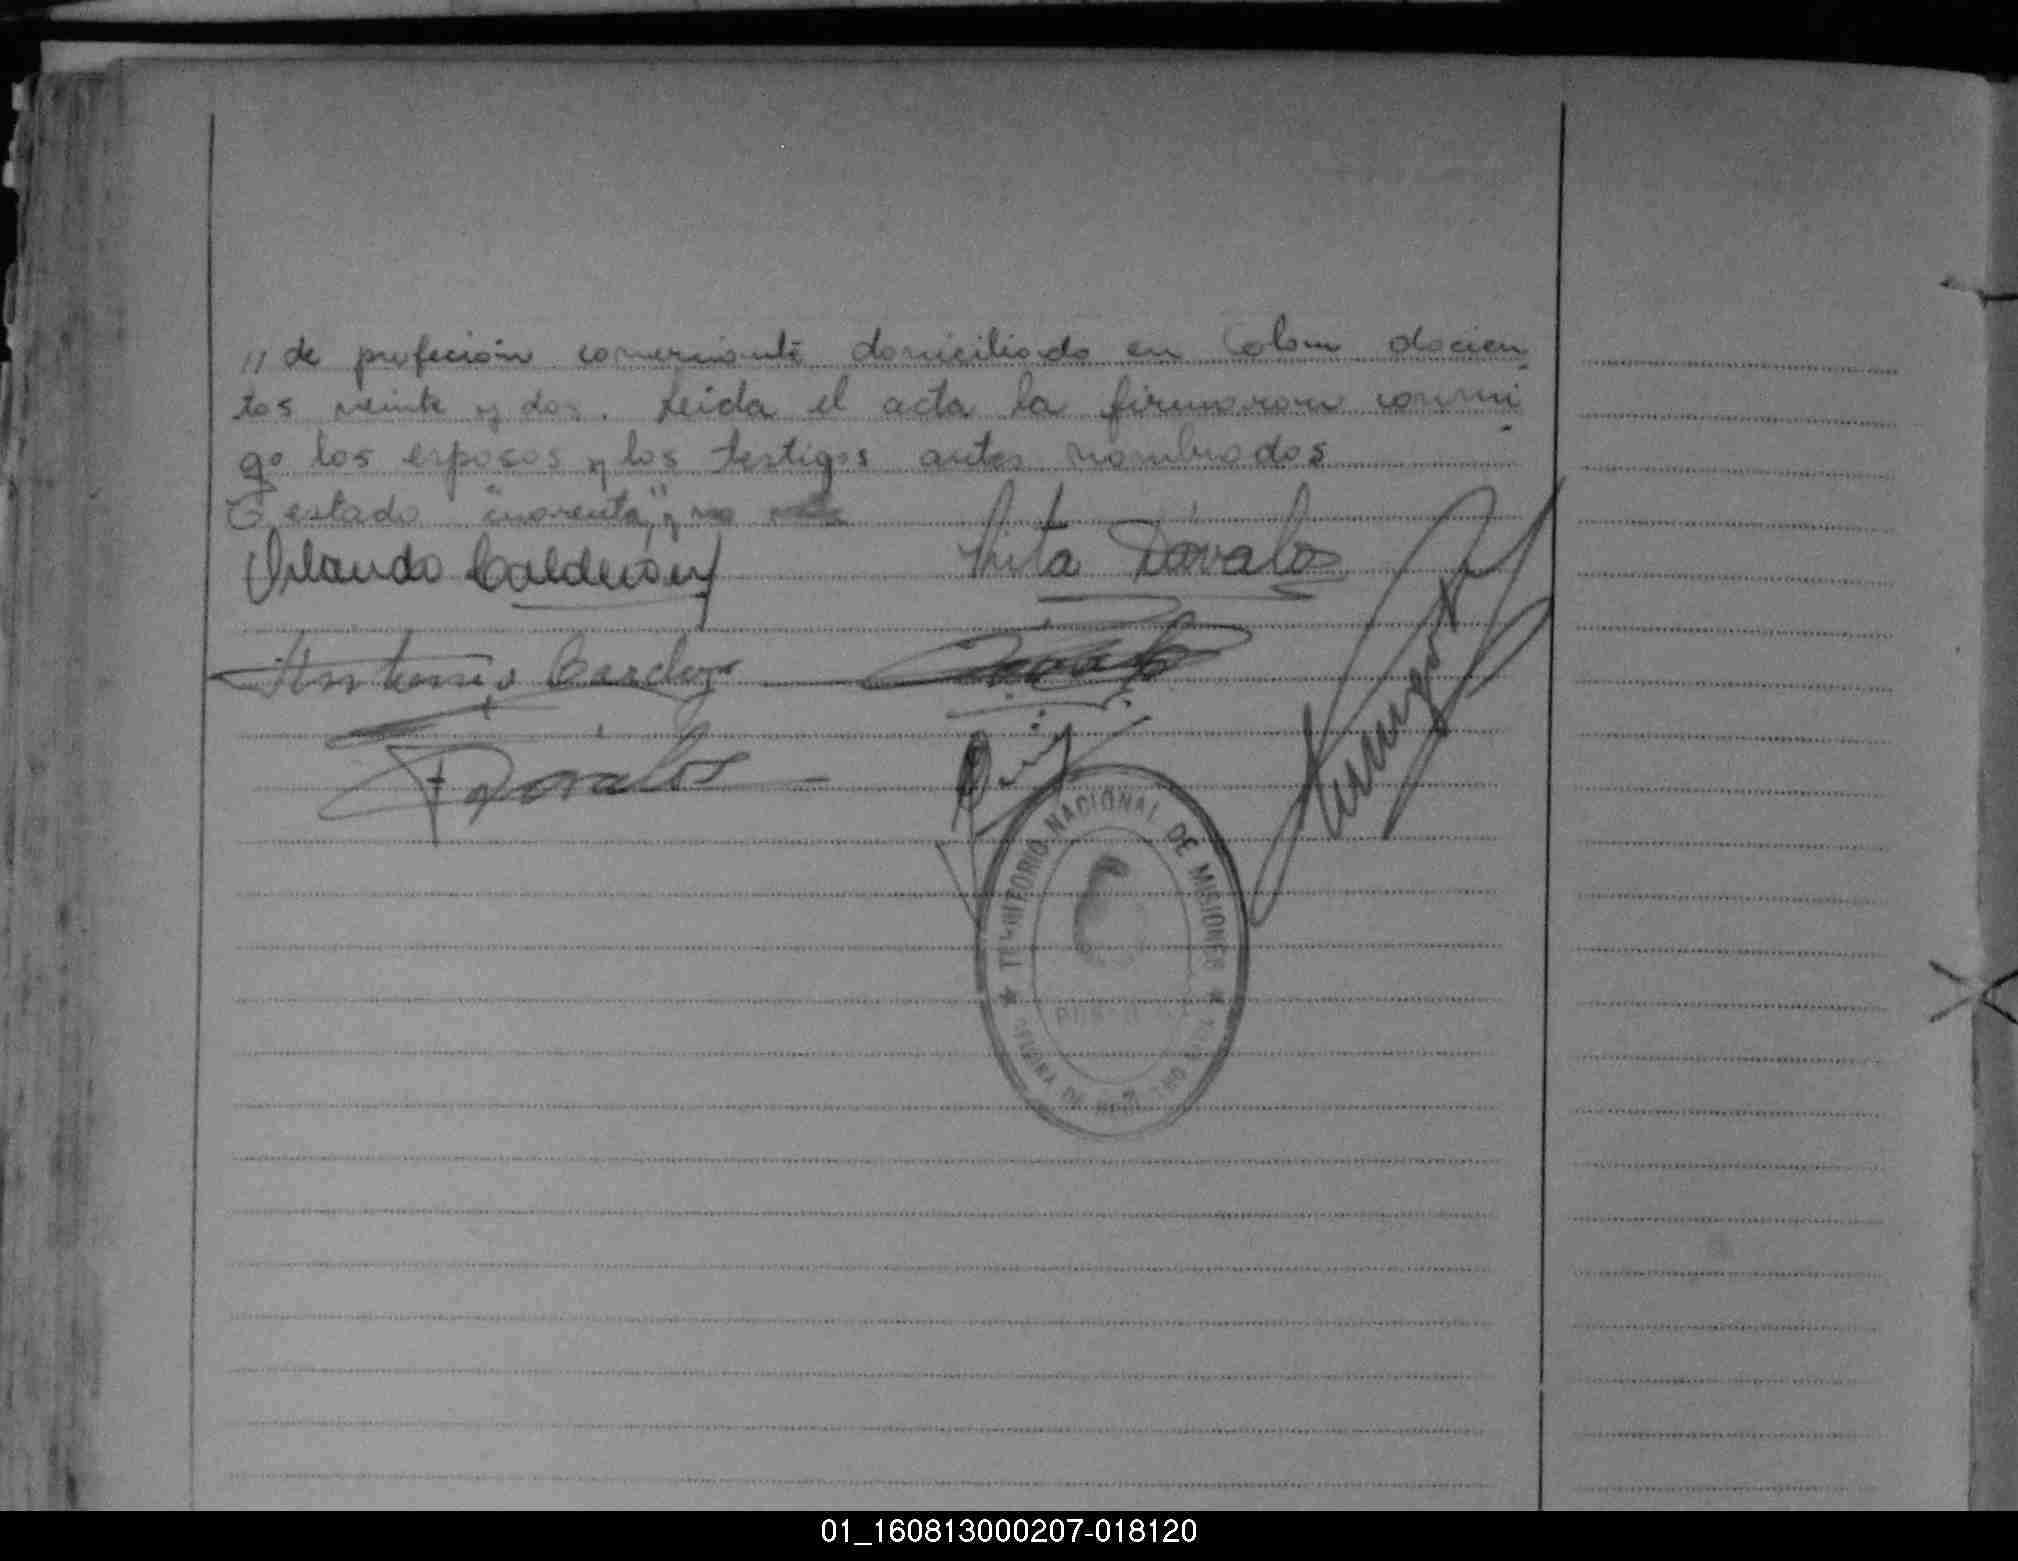 " de profeción comerciante domiciliado en Colon docien
tos veinte y dos. Leida el acta la firmaron conmi
go los esposos y los testigos antes nombrados
E. estado "cuarenta" y no vale
Orlando Calderon Rita Dávalos
Antonio Cardozo
F Dávalos
TERRITORIO NACIONAL DE MISIONES
01_160813000207-018120